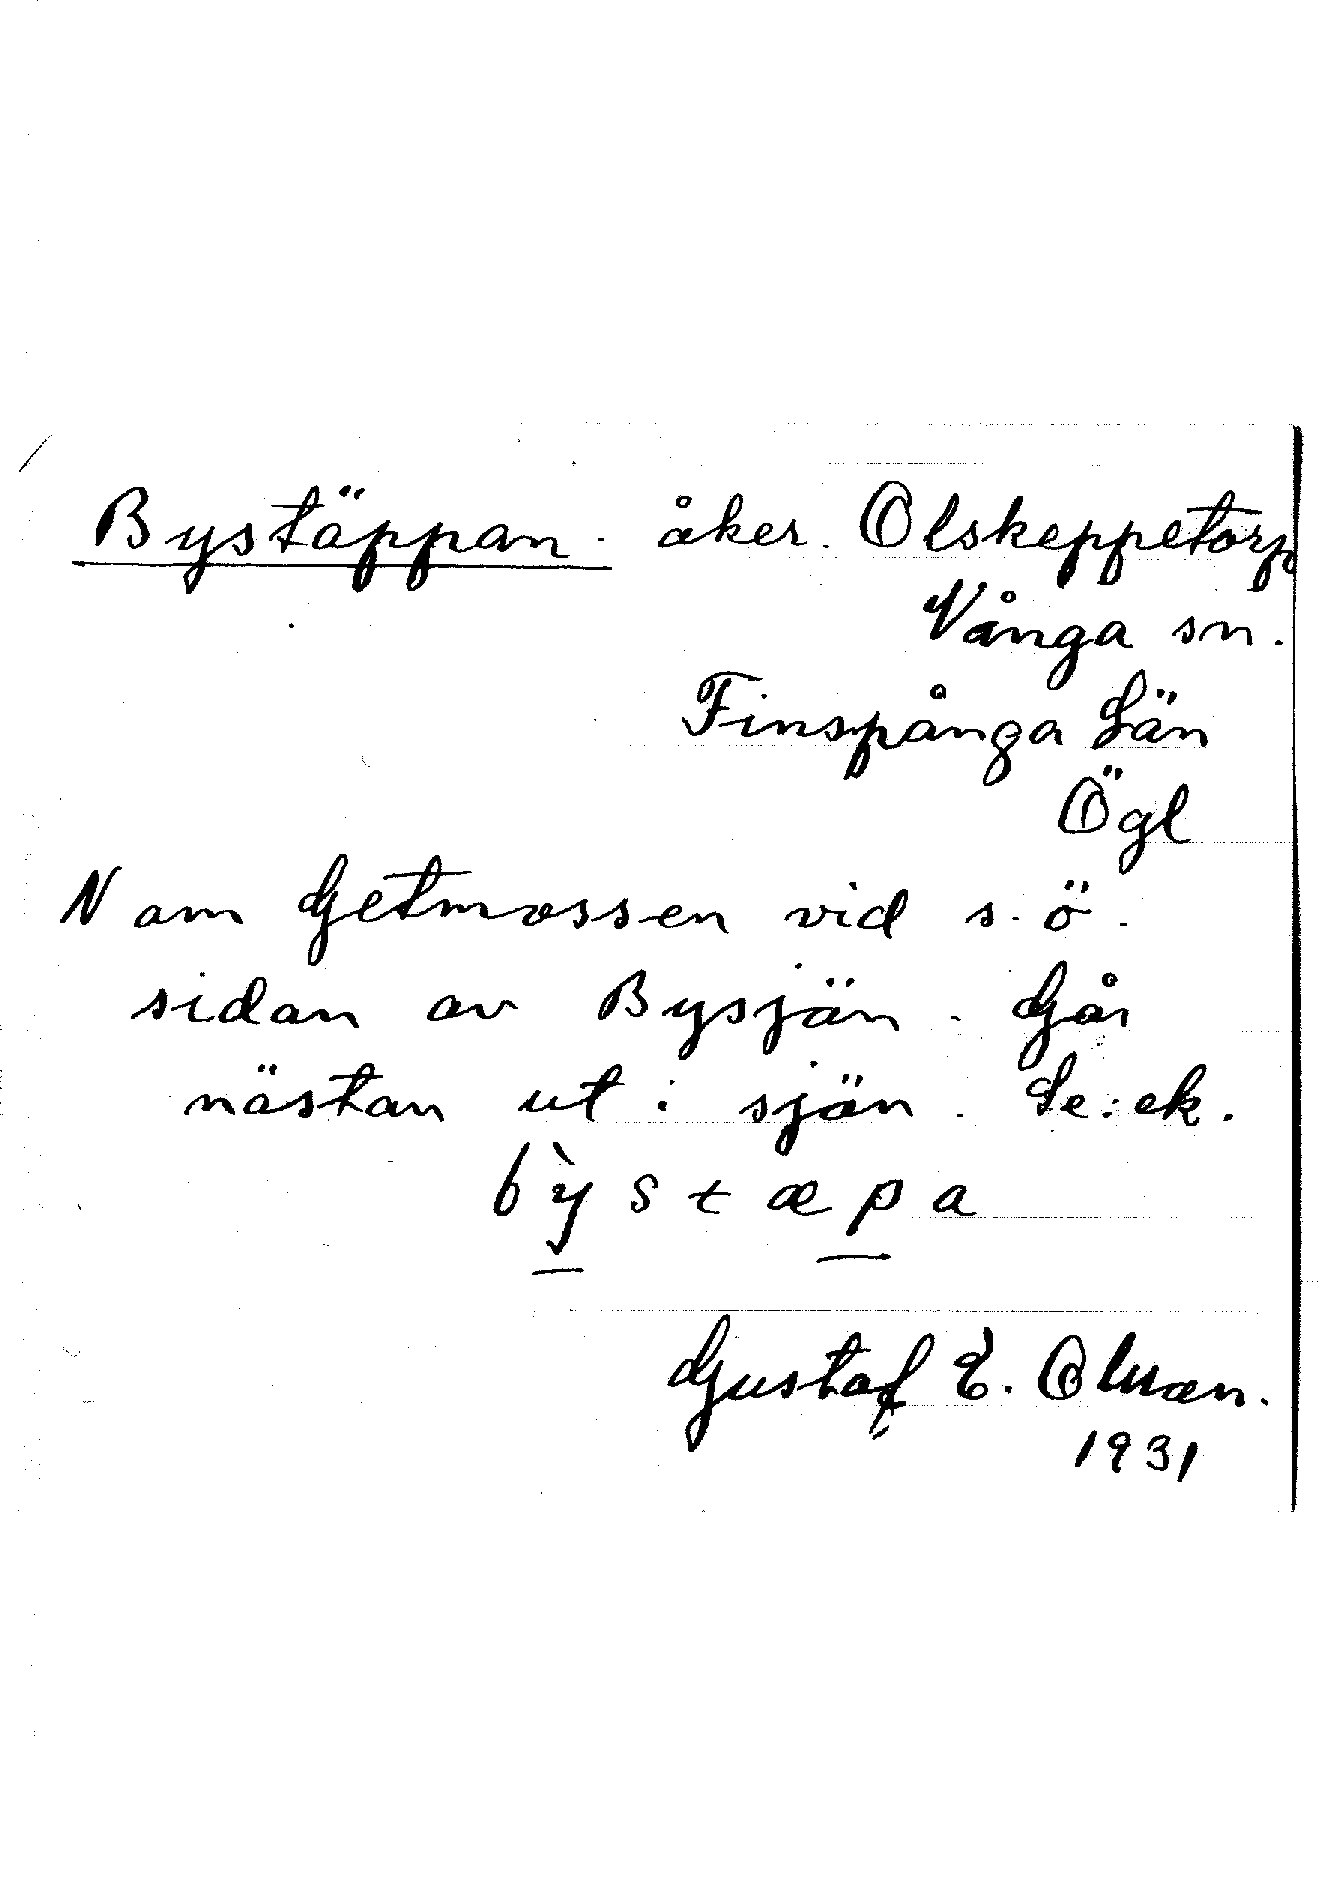 Bystäppan. åker. Olskeppetorp
Vånga sn.
Finspånga Län
Ögl
N om Getmossen vid s.ö.
sidan av Bysjön. Går
nästan ut i sjön. Se: ek.
bỳstæpa
Gustaf E. Olman.
1931